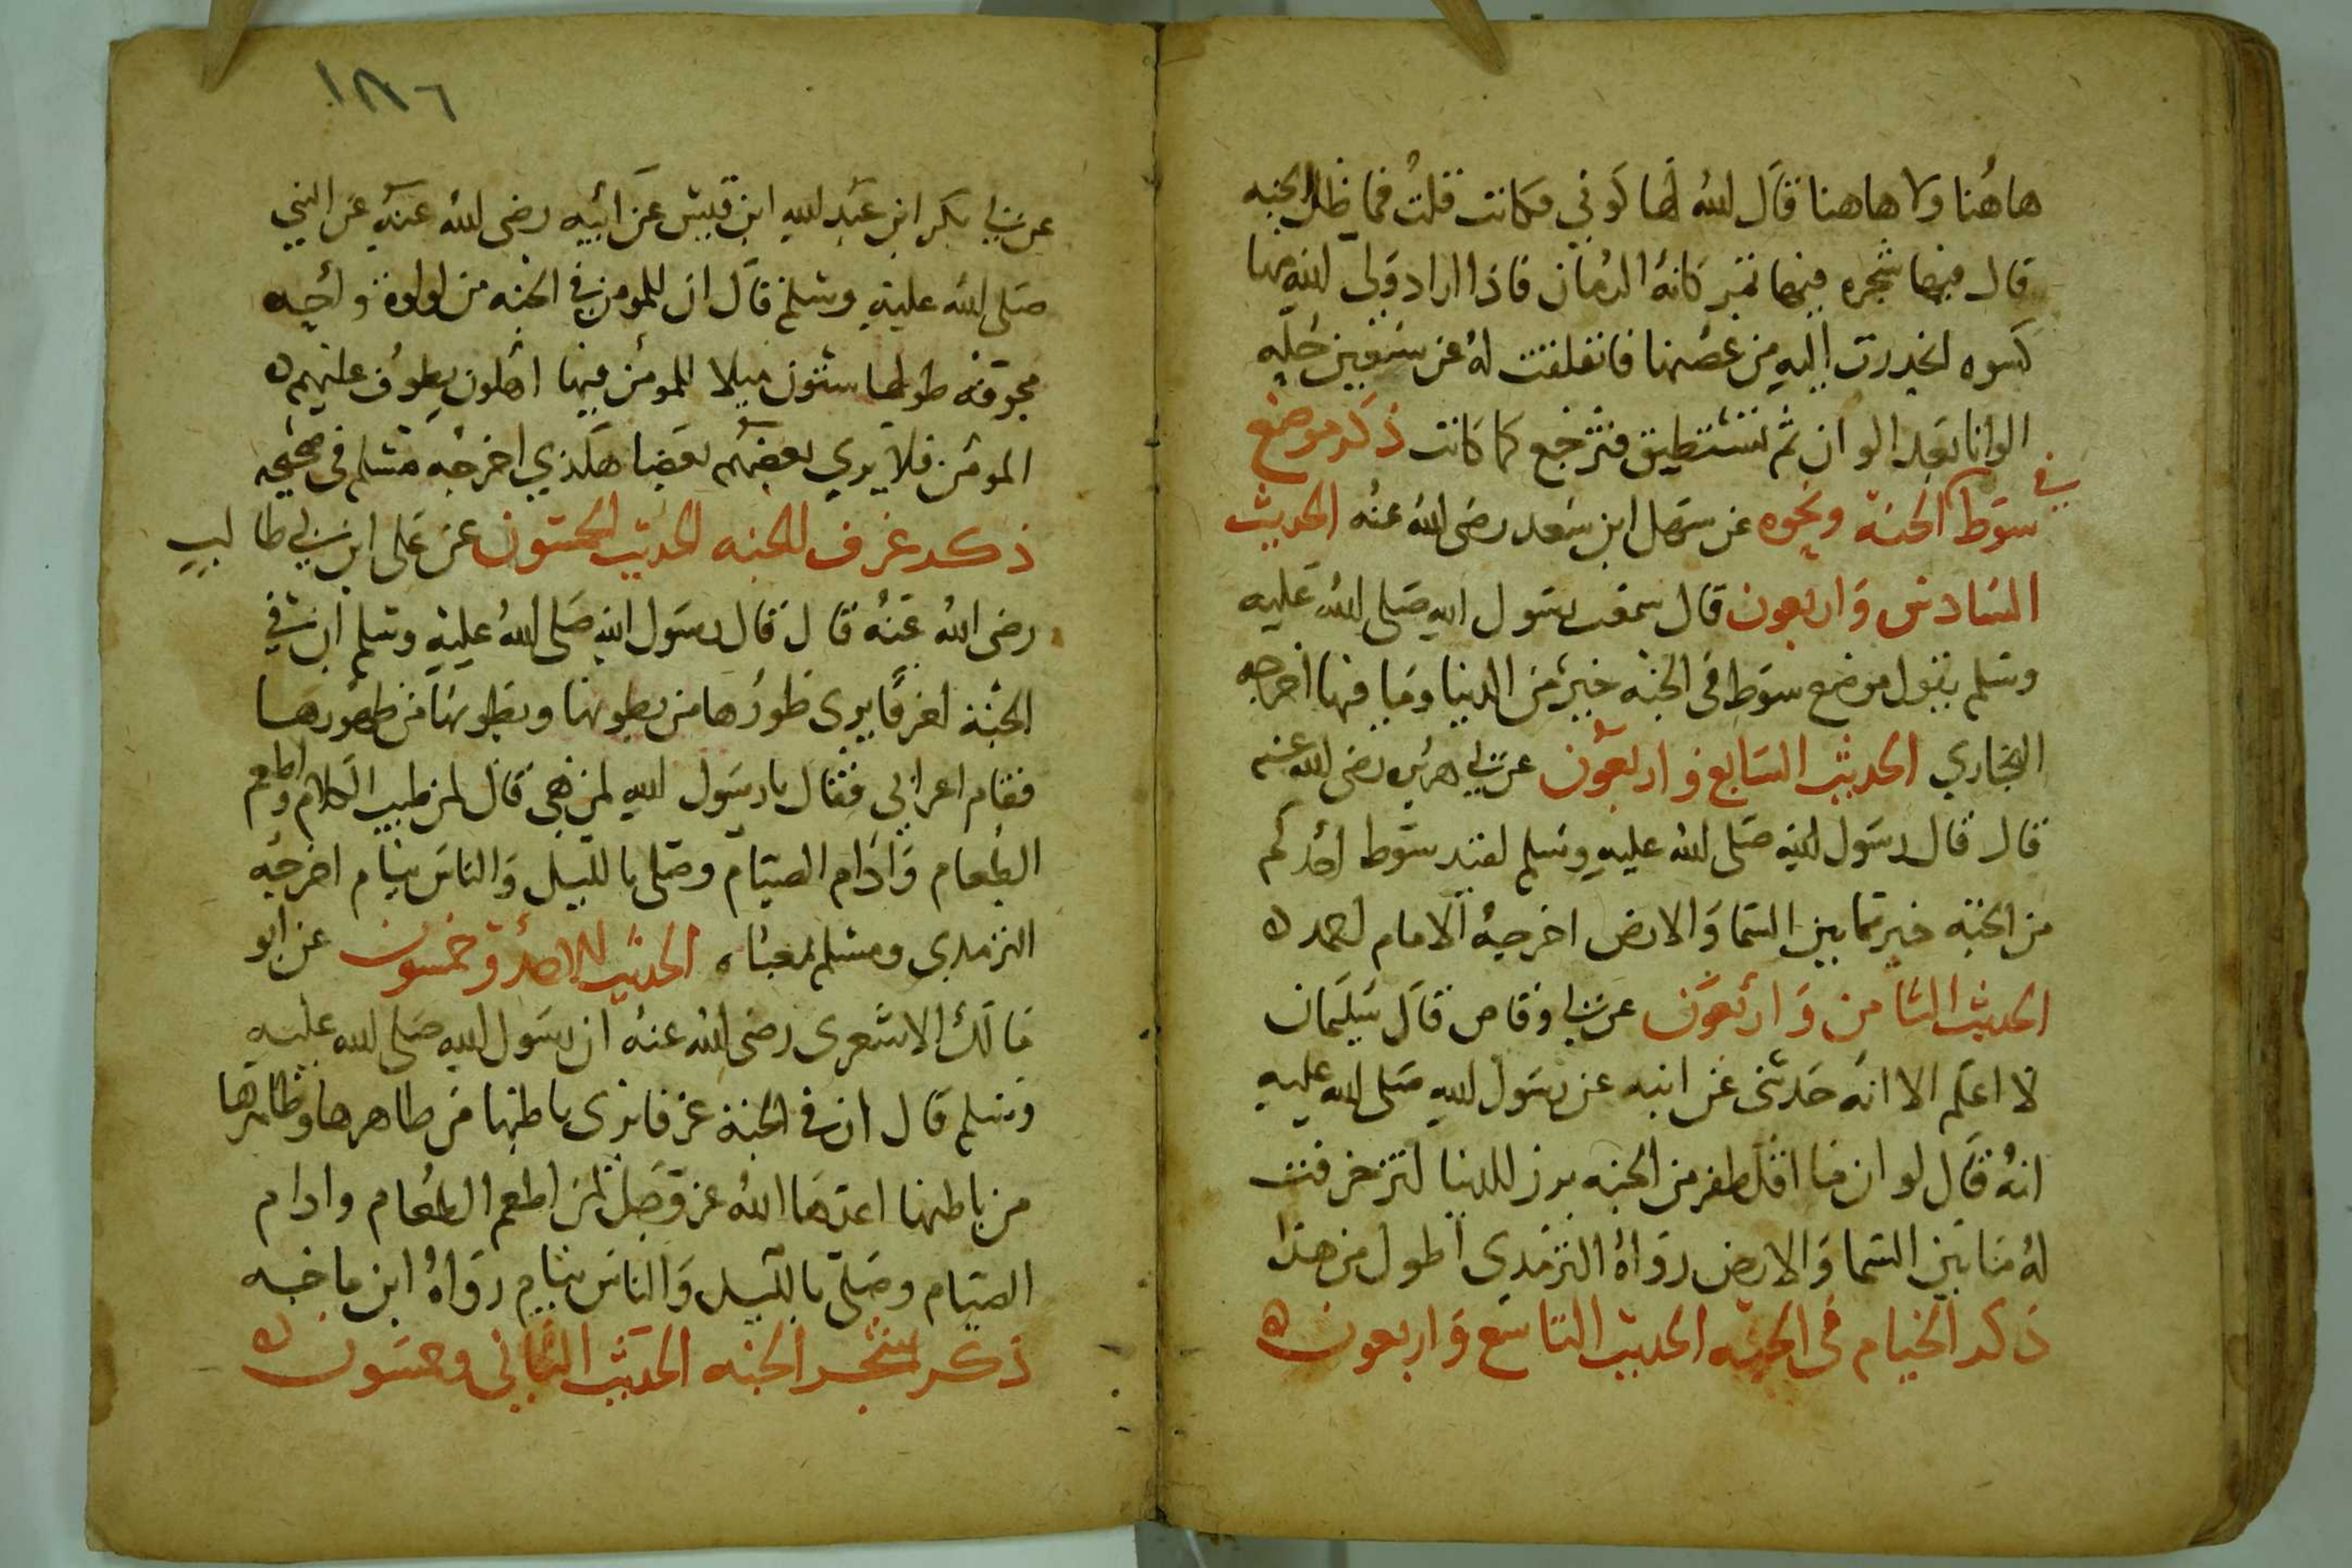 هاهُنا ولا هاهنا قال الله لها كوني فكانت قلت فما ظلل الجنه
قال فيها شجره فيها ثمر كانه الرمان فاذا اراد ولي الله منها
كسوه انحدرت اليه من غصنها فانفلقت له عن سبعين حله
الوانا بعد الوان ثم تنطبق فترجع كما كانت ذكر موضع
في
سوط الجنة ونحوه عن سهل ابن سعد رضى الله عنه الحديث
السادس واربعون قال سمعت رسول الله صلى الله عليه
وسلم يقول موضع سوط في الجنه خير من الدنيا وما فيها اخرجه
البخاري الحديث السابع واربعون عن ابي هريره رضى الله عنه
قال قال رسول الله صلى الله عليه وسلم لقيد سوط احدكم
من الجنه خير مما بين السما والارض اخرجه الامام احمد ه
الحديث الثامن واربعون عن ابي وقاص قال سليمان
لا اعلم الا انه حدثني عن ابيه عن رسول الله صلى الله عليه
انه قال لو ان ما اقل ظفر من الجنه برز للدنيا لتزخرفت
له ما بين السما والارض رواه الترمدي اطول من هذا
ذكر الخيام في الجنه الحديث التاسع واربعون ه
١٨٦
عن ابي بكر ابن عبد الله ابن قيس عن ابيه رضى الله عنه عن النبي
صلى الله عليه وسلم قال ان للمومن في الجنه من لولوة واحده
مجوفه طولها ستون ميلا للمومن فيها اهلون يطوف عليهم ه
المومن فلا يري بعضهم بعضا هكذي اخرجه مسلم في صحيحه
ذكر غرف الجنه الحديث الخمسون عن علي ابن ابي طالب
رضى الله عنه قال قال رسول الله صلى الله عليه وسلم ان في
الجنة لغرفا يرى ظهورها من بطونها وبطونها من ظهورها
فقام اعرابي فقال يا رسول الله لمن هي قال لمن طيب الكلام واطعم
الطعام وادام الصيام وصلى بالليل والناس نيام اخرجه
الترمدي ومسلم بمعناه الحديث الاحد وخمسون عن ابو
مالك الاشعرى رضى الله عنه ان رسول الله صلى الله عليه
وسلم قال ان في الجنة غرفا يرى باطنها من ظاهرها وظاهرها
من باطنها اعدها الله عز وجل لمن اطعم الطعام وادام
الصيام وصلى بالليل والناس نيام رواه ابن ماجه
ذكر شجر الجنه الحديث الثاني وخمسون ه